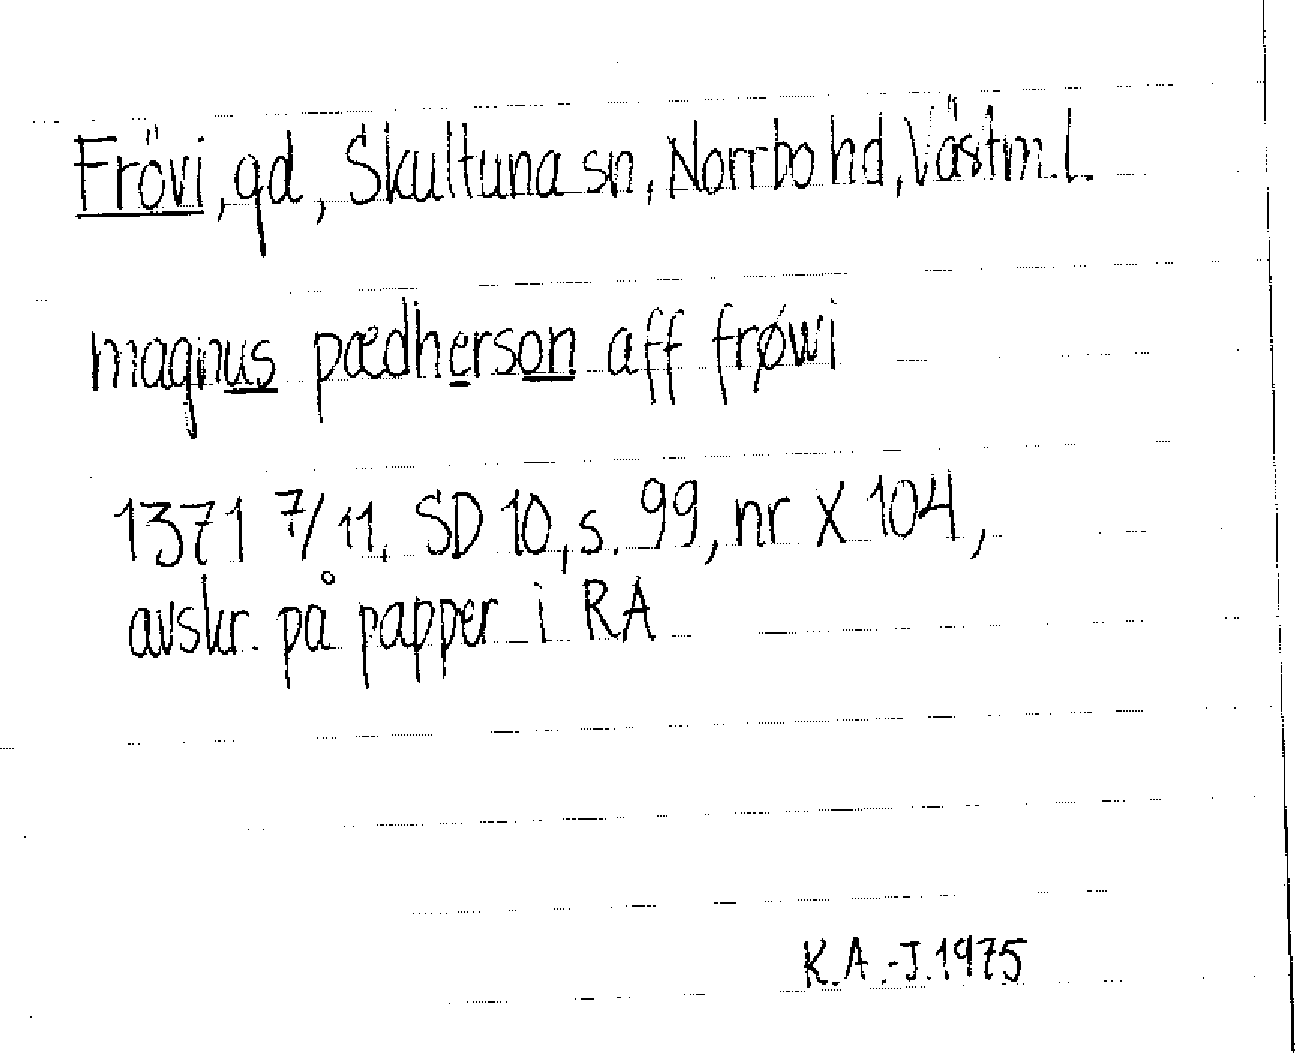 Frövi, gd, Skultuna sn, Norrbo hd, Västm. l.
magnus pædherson aff frøwi
1371 7/11. SD 10, s. 99, nr X 104,
avskr. på papper i RA
K.A.-J. 1975